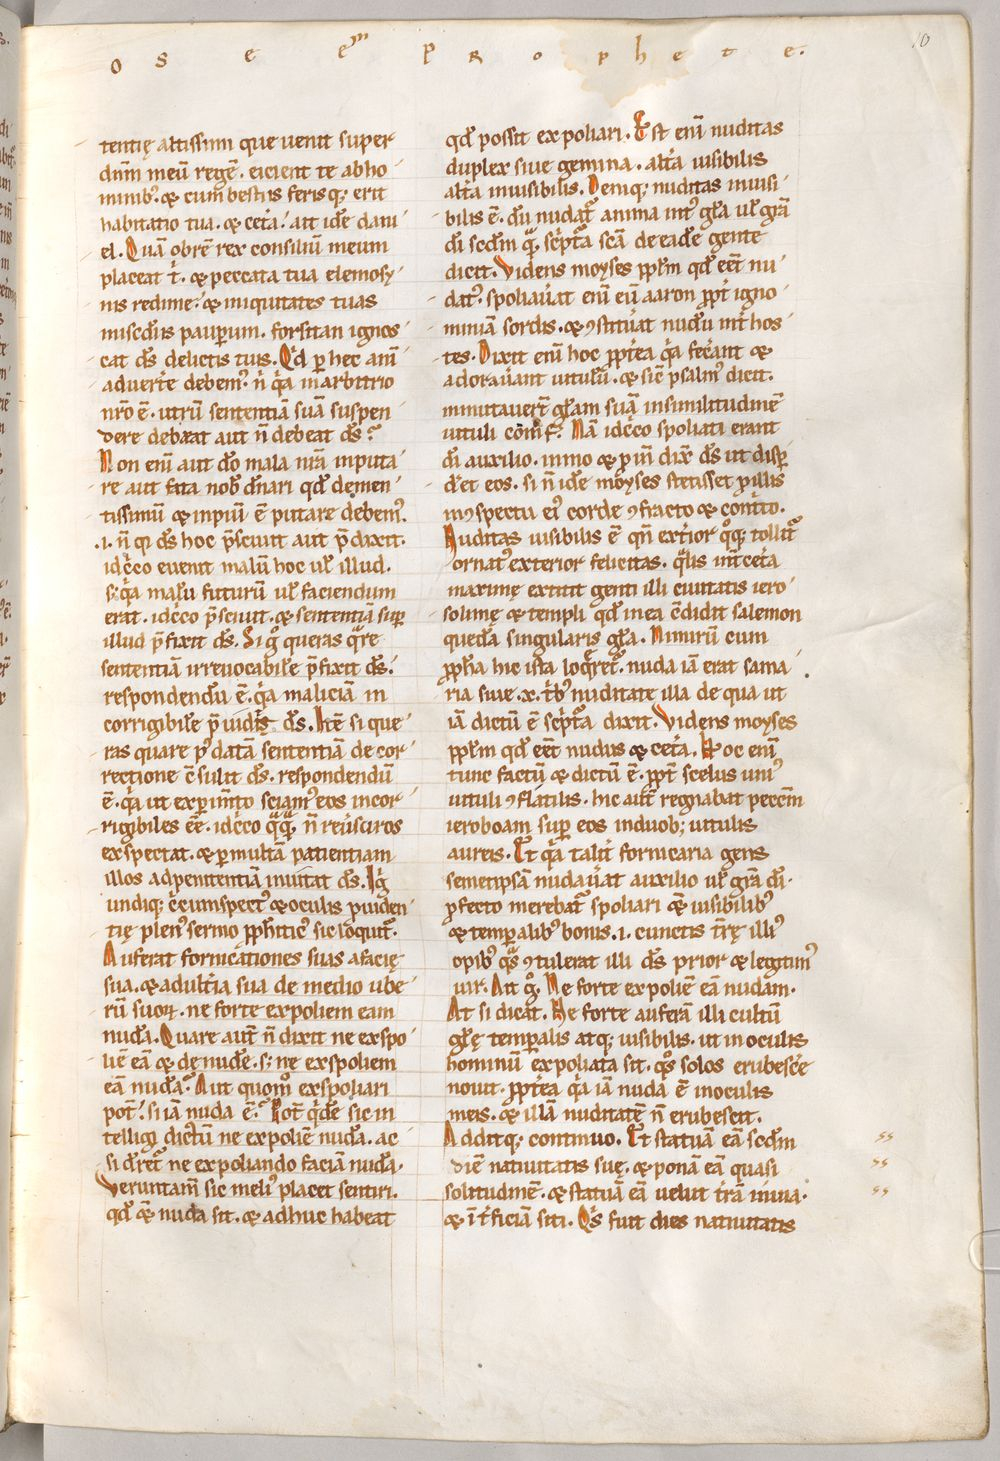 O S E Ēᵐ P R O P H E T E.
10
tentię altissimi que uenit super
dn̄m meū regē. eicient te abho
minib; & cum bestiis ferisq; erit
habitatio tua. & cet̄a. ait idē dani
el. Quā obrē rex consiliū meum
placeat t̄. & peccata tua elemosy
nis redime. & iniquitates tuas
misc̄diis paup̄um. forsitan ignos
cat ds̄ delictis tuis. Qd̄ p hec anī
aduert̄e debem᷒. n̄ q̄a inarbitrio
nr̄o ē. utrū sententiā suā suspen
dere debeat aut n̄ debeat ds̄?
Non enī aut dō mala nr̄a inputa
re aut fata nob̄ dn̄ari qd̄ dęmen
tissimū & inpiū ē putare debem᷒.
.i. n̄ q ds̄ hoc p̄sciuit aut p̄dixit.
idc̄co euenit malū hoc ul̄ illud.
s; q̄a malū futurū ul̄ faciendum
erat. idc̄co p̄sciuit. & sententiā sup̄
illud p̄fixit ds̄. Si ḡ queras q̄re
sententiā irreuocabilē p̄fixit ds̄.
respondendū ē. q̄a maliciā in
corrigibilē p̄uidit ds̄. Itē si que
ras quare p᷒ datā sententiā de cor
rectione c̄sulit ds̄. respondendū
ē. q̄a ut exp̄im̄to sciam᷒ eos incor
rigibiles eē. idc̄co q̄q̄ n̄ reūsuros
exspectat. & p multā patientiam
illos adpenitentiā inuitat ds̄. Iḡ
undiq; c̄cumspect᷒ & oculis p̄uiden
tię plen᷒ sermo pph̄tic᷒ sic loquit̄.
Auferat fornicationes suas afacię
sua. & adult̄ia sua de medio ube
rū suoꝝ. ne forte expoliem eam
nudā. Quare aut̄ n̄ dixit ne exspo
liē eā & dęnudē. s; ne exspoliem
eā nudā? Aut quom̊ exspoliari
pot̄. si iā nuda ē? Pot̄ q̄dē sic in
telligi dictū ne expoliē nudā. ac
si dr̄et ne expoliando faciā nudā.
Veruntam̄ sic meli᷒ placet sentiri.
qd̄ & nuda sit. & adhuc habeat
qd̄ possit expoliari. Est enī nuditas
duplex siue gemina. alt̄a uisibilis
alt̄a inuisibilis. Deniq; nuditas inuisi
bilis ē. dū nudat̄ anima int᷒ gl̄a ul̄ gr̄a
dī scd̄m q̄. sc̄pt̄a sc̄a de eadē gente
dicit. Videns moyses pp̄lm qd̄ eēt nu
dat᷒. spoliau̅at enī eū aaron ppt̄ igno
miniā sordis. & ꝯstitūat nudū int̄ hos
tes. Dixit enī hoc ppt̄ea q̄a fec̄ant &
adorau̅ant uitulū. & sic̄ psalm᷒ dicit.
inmutauer̄ gl̄am suā insimilitudinē
uituli com̄.f.? Nā idc̄co spoliati erant
dī auxilio. inmo & p̄m̄ dix̄ ds̄ ut disp̄
d̄et eos. si n̄ idē moyses stetisset p̄ illis
inꝯspectu ei᷒ corde ꝯfracto & cont̄ito.
Nuditas uisibilis ē qn̄ ext̄ior q̊q; tollit̄
ornat᷒ exterior felicitas. q̄lis int̄ cet̄a
maximę extitit genti illi ciuitatis iero
solimę & templi qd̄ in ea c̄didit salemon
quedā singularis gl̄a. Nimirū cum
pph̄a hic ista loq̄ret̄. nuda iā erat sama
ria siue .x. t̄b᷒ nuditate illa de qua ut
iā dictū ē sc̄pt̄a dixit. Videns moyses
pp̄lm qd̄ eēt nudus & cet̄a. Hoc enī
tunc factū & dictū ē. ppt̄ scelus uni᷒
uituli ꝯflatilis. hic aut̄ regnabat pecc̄m
ieroboam sup̄ eos induob; uitulis
aureis. Et q̄a talit̄ fornicaria gens
semetipsā nudau̅at auxilio ul̄ gr̄a dī.
p̄fecto merebat̄ spoliari & uisibilib᷒
& temp̄alib᷒ bonis .i. cunctis t̄rę illi᷒
opib᷒ q̄s ꝯtulerat illi ds̄ prior & legitim᷒
uir. Ait ḡ. Ne forte expoliē eā nudam.
At si dicat. Ne forte auferā illi cultū
gl̄ę temp̄alis atq; uisibilis. ut in oculis
hominū expoliata sit. q̊s solos erubesc̄e
nouit. ppt̄ea q̄a iā nuda ē inoculis
meis. & illā nuditatē n̄ erubescit.
Additq; continuo. Et statuā eā scd̄m
diē natiuitatis suę. & ponā eā quasi
solitudinē. & statuā eā uelut t̄rā inuia.
& īt̄ficiā siti. Q̄s fuit dies natiuitatis
ss
ss
ss